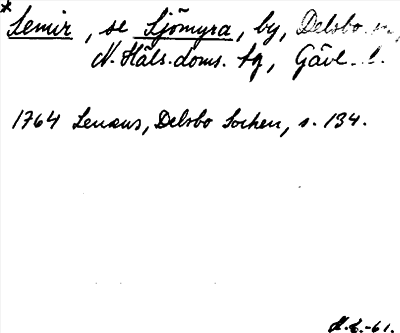 *Semir, se Sjömyra, by, Delsbo sn,
N. Häls. doms. sg, Gävl. l.
1764 Lenæus, Delsbo Socken, s. 134.